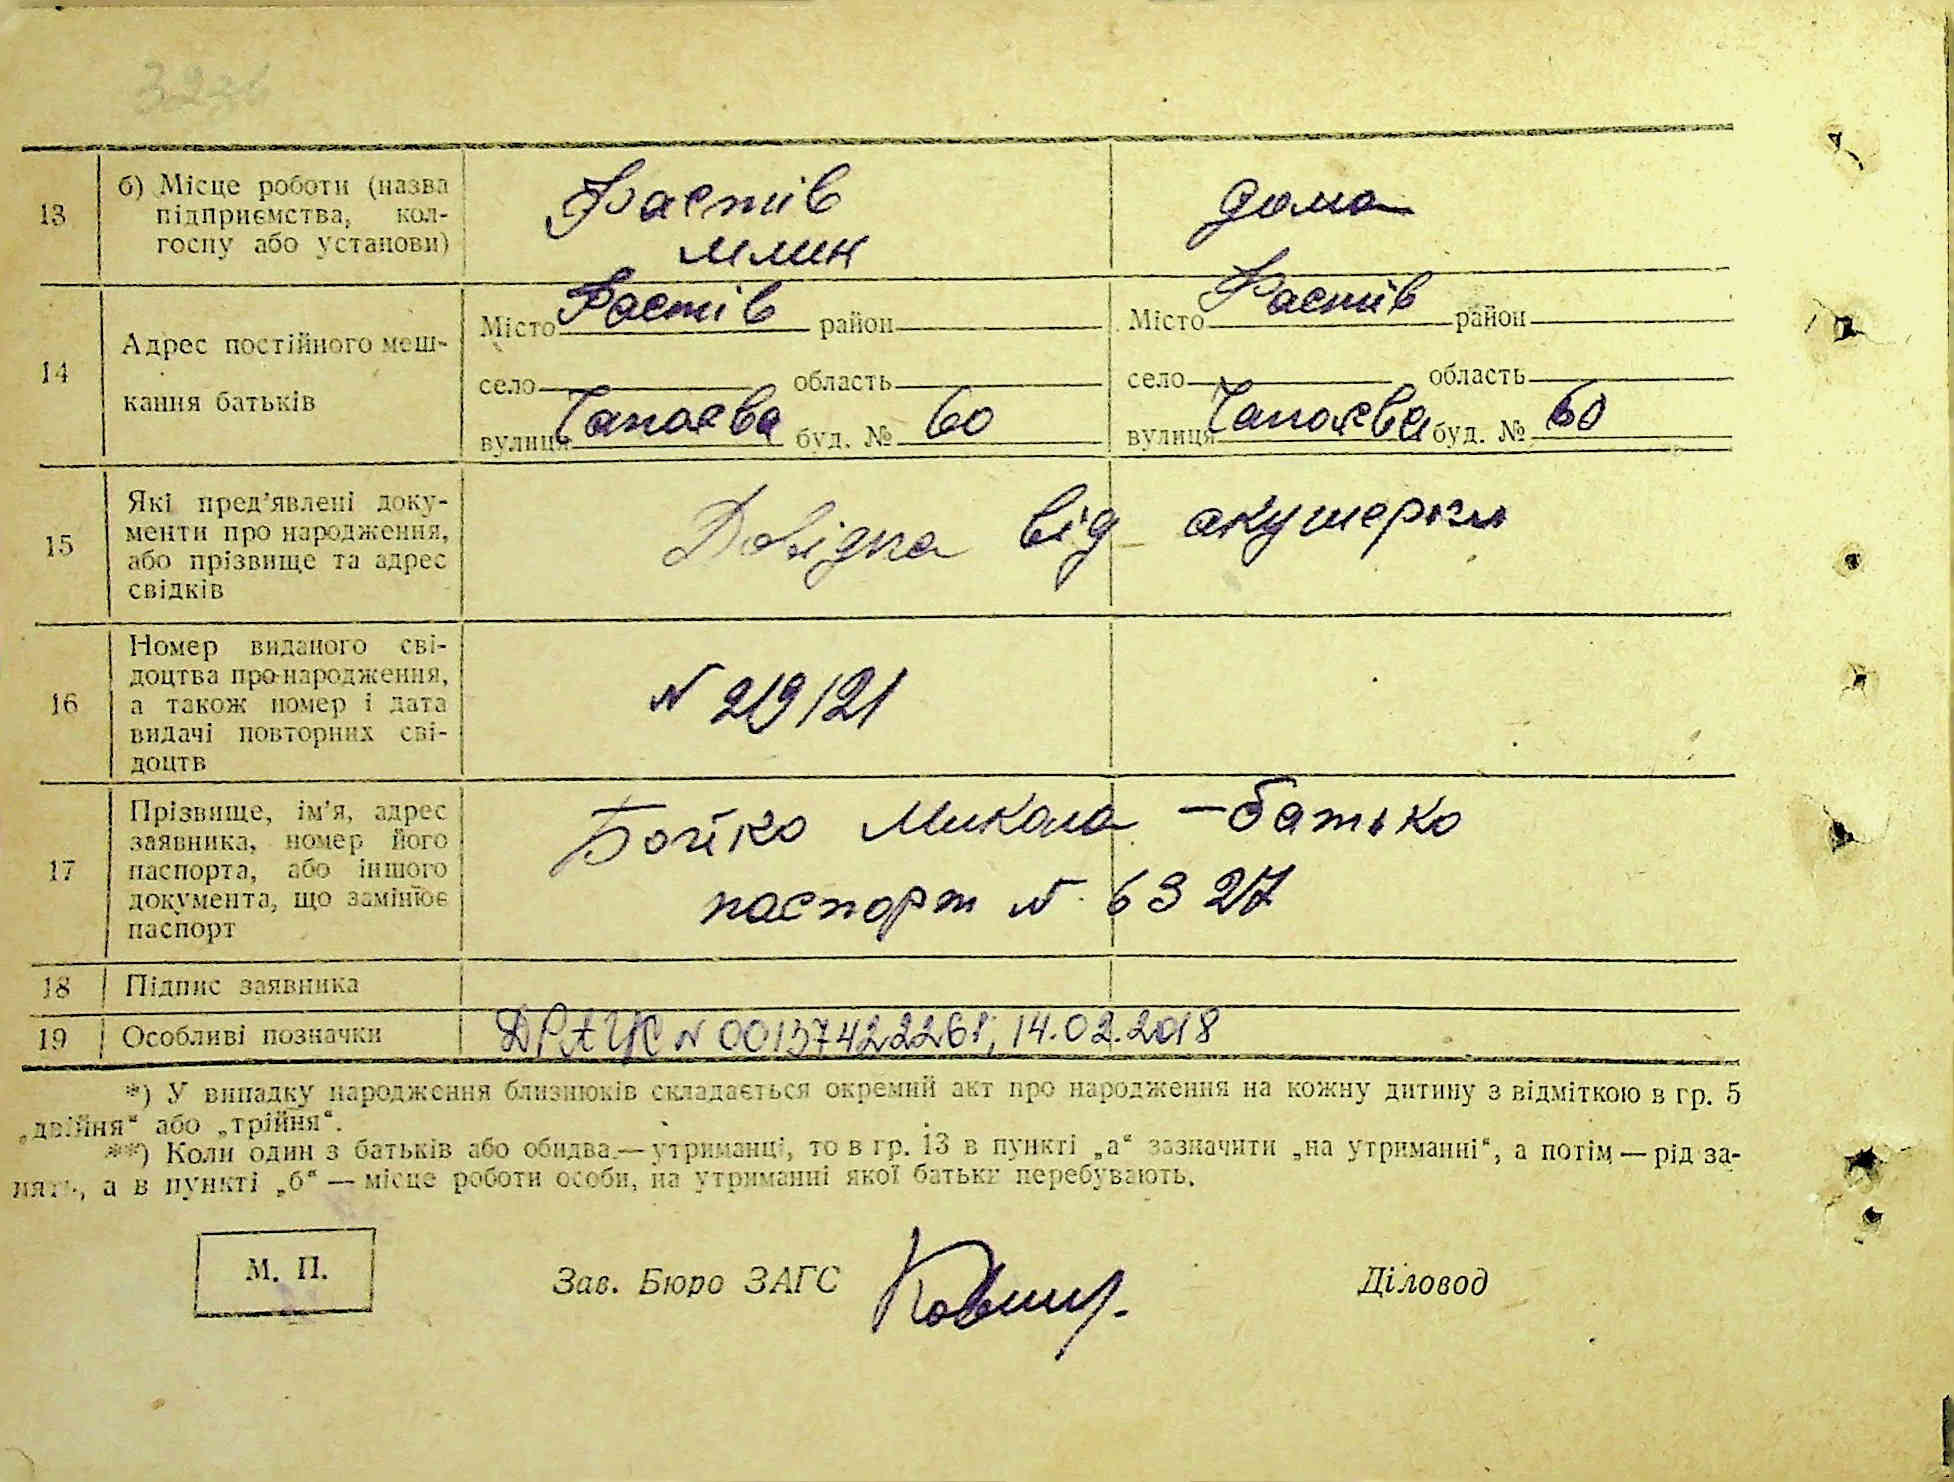 13 б) Місце роботи (назва Фастів дома
підприємства, кол- млин
госпу або установи)
14 Адрес постійного меш-
кання батьків
Місто Фастів район Місто Фастів район
село область село область
вулиця Чапаєва буд. № 60 вулиця Чапаєва буд. № 60
15 Які пред'явлені доку- Довідка від акушерки
менти про народження,
або прізвище та адрес
свідків
16 Номер виданого сві-
доцтва про народження,
а також номер і дата N 219121
видачі повторних сві-
доцтв
17 Прізвище, ім'я, адрес Бойко Микола - батько
заявника, номер його
паспорта, або іншого паспорт N 6327
документа, що замінює
паспорт
18 Підпис заявника
19 Особливі позначки ДРАЦС N 00137422261, 14.02.2018
*) У випадку народження близнюків складається окремий акт про народження на кожну дитину з відміткою в гр. 5
„двійня“ або „трійня“.
**) Коли один з батьків або обидва — утриманці, то в гр. 13 в пункті „а“ зазначити „на утриманні“, а потім — рід за-
нять, а в пункті „б“ — місце роботи особи, на утриманні якої батьки перебувають.
М. П. Зав. Бюро ЗАГС Діловод